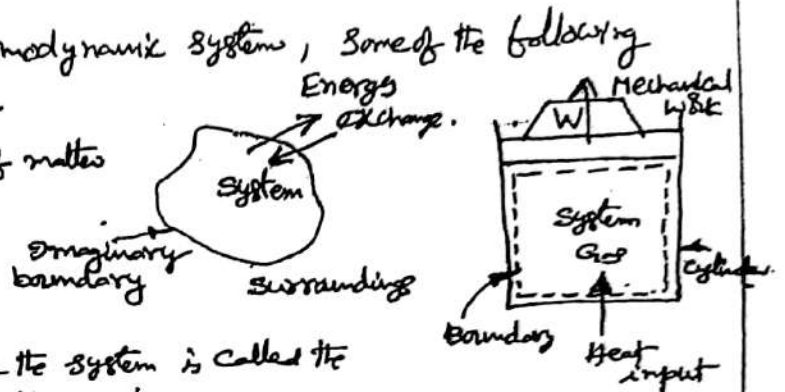 modynamic system, Some of the following
Energy
exchange.
Mechanical
Work
W
f matter
System
System
Gas
Imaginary
boundary
Surroundings
Cylinder.
Boundary
Heat
input
the system is called the